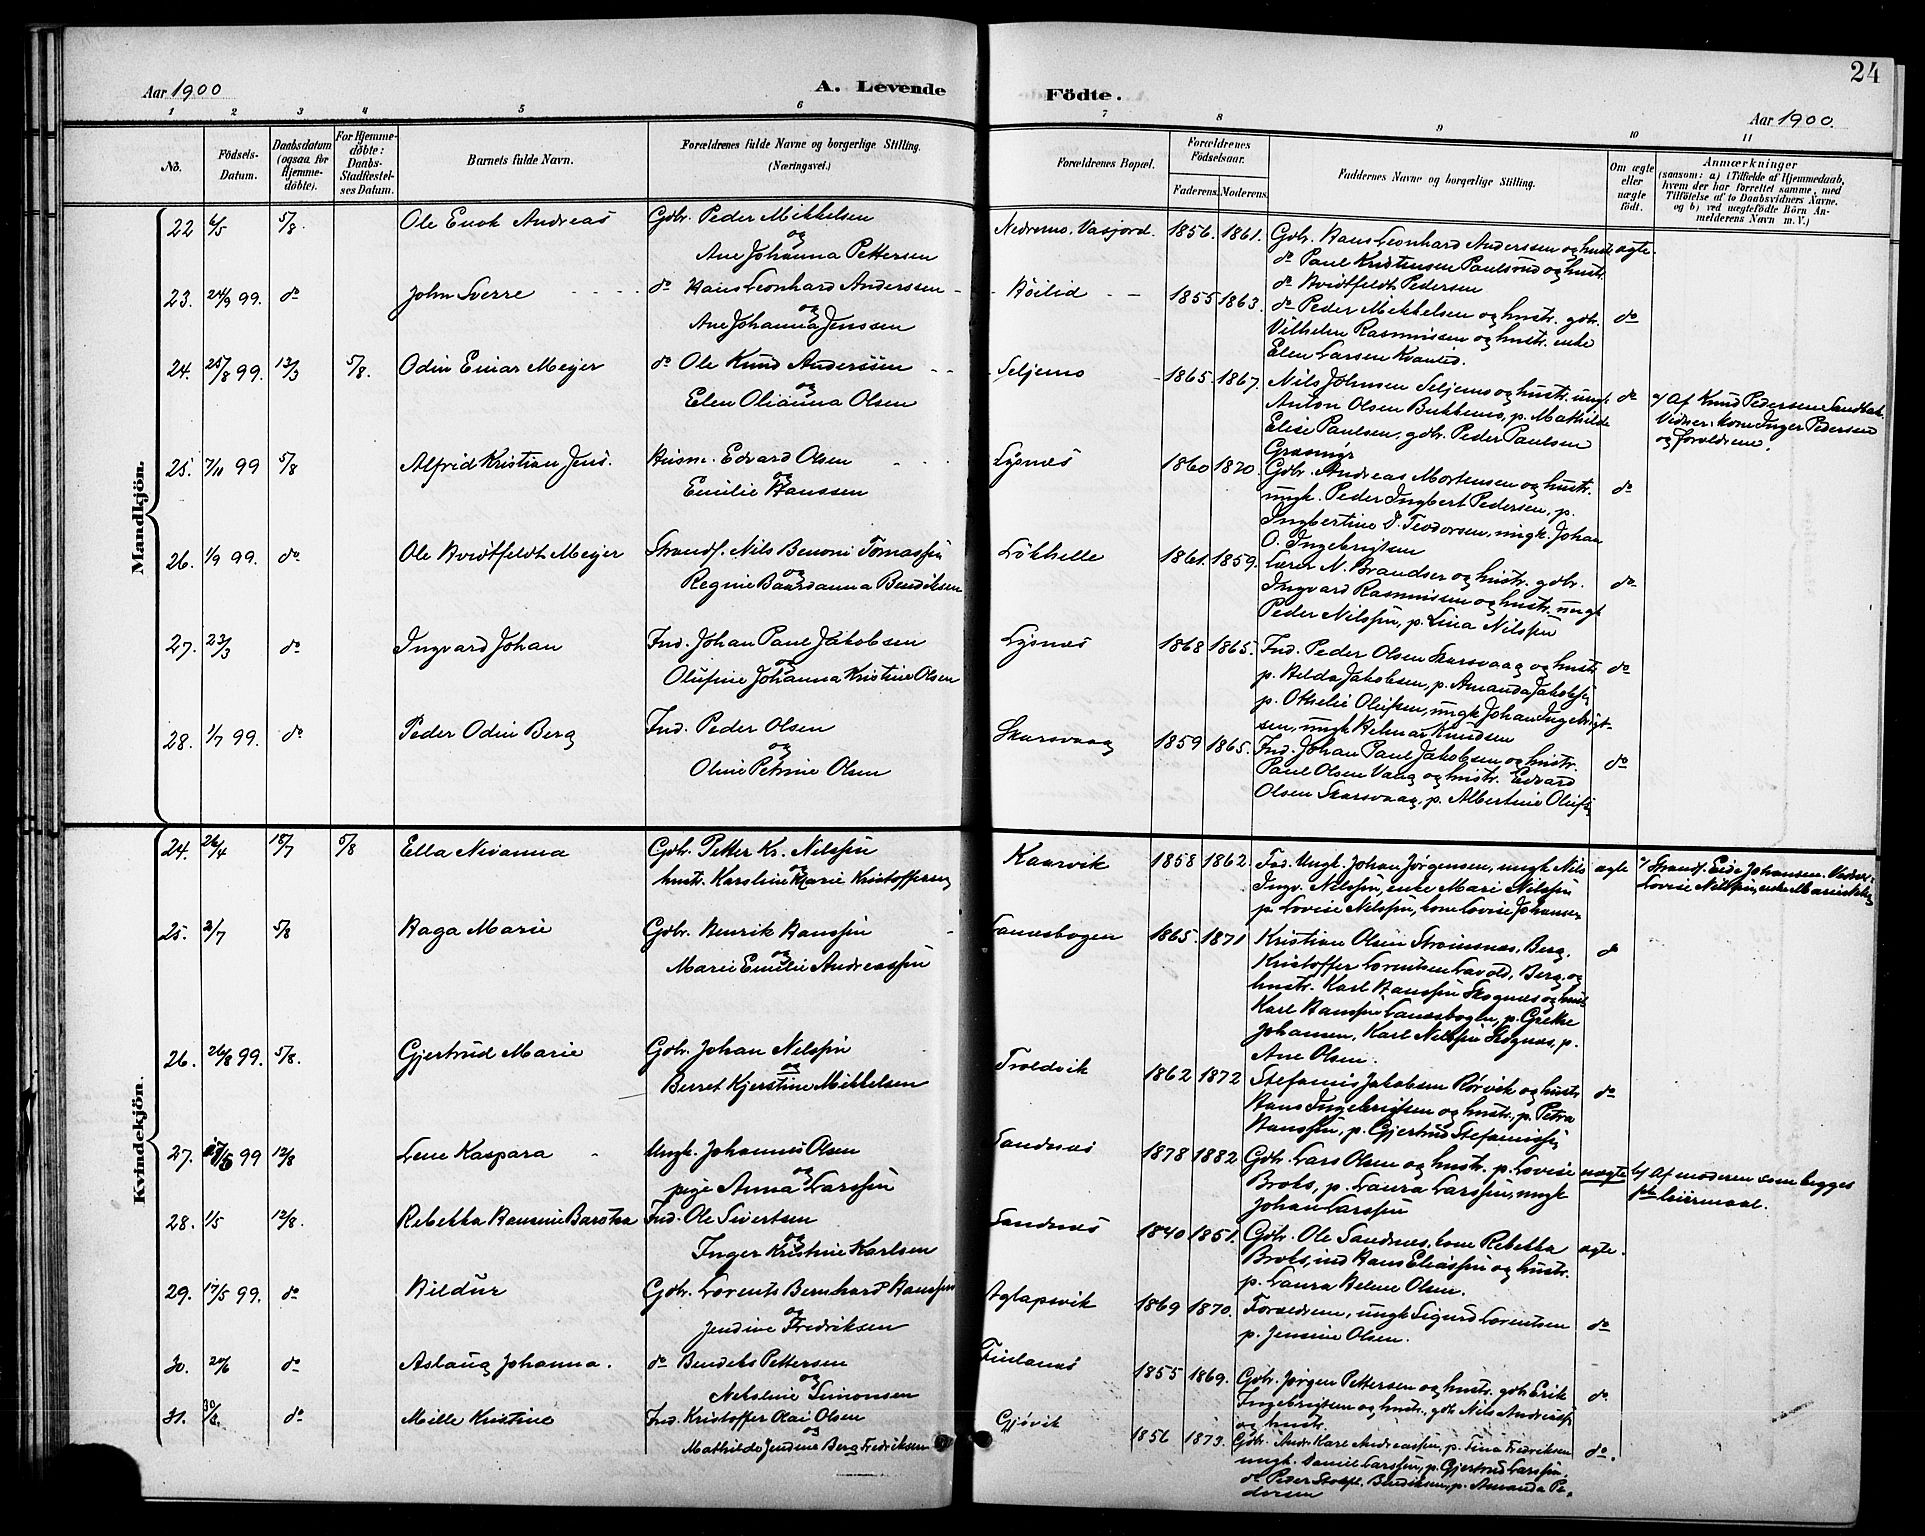 24
Aar 1900
A. Levende
Födte.
Aar 1900.
1 2 3 4 5 6 7 8 9 10 11
No.
Födsels-
Datum.
Daabsdatum
(ogsaa for
Hjemme-
döbte).
For Hjemme-
döbte:
Daabs-
Stadfæstel-
ses Datum.
Barnets fulde Navn.
Forældrenes fulde Navne og borgerlige Stilling.
(Næringsvei.)
Forældrenes Bopæl.
Forældrenes
Födselsaar.
Faderens. Moderens.
Faddernes Navne og borgerlige Stilling.
Om ægte
eller
uægte
födt.
Anmærkninger
(saasom: a) i Tilfælde af Hjemmedaab,
hvem der har forrettet samme, med
Tilföielse af to Daabsvidners Navne.
og b) ved uægtefödte Börn An-
melderens Navn m. V.)
Mandkjön.
22 6/5 5/8. Ole Enok Andreas Gdbr. Peder Mikkelsen
og
Ane Johanna Pettersen
Nedremo, Vasjord. 1856. 1861. Gdbr. Hans Leonhard Anderssen og hustr. ægte.
do Paul Kristensen Paulsrud og hustr.
do Hvidtfeldt Pedersen
23. 24/9 99. do John Sverre do Hans Leonhard Anderssen
og
Ane Johanna Jenssen
Höilid 1855 1863. do Peder Mikkelsen og hustr. gdbr. do
Vilhelm Rasmussen og hustr. enke
Elen Larsen Kvanlid.
24. 25/8 99. 13/3 5/8. Odin Einar Meyer do Ole Knud Anderssen
og
Elen Olianna Olsen
Seljemo 1865 1867. Nils Johnsen Seljemo og hustr. ungk. do
Anton Olsen Bukkemo, p. Mathilde
Elise Paulsen, gdbr. Peder Paulsen
Grasmyr
a/ Af Knud Pedersen Sandbak.
Vidner: kone Inger Pedersen
og forældrene.
25. 7/11 99 5/8 Alfrid Kristian Jens. Husm. Edvard Olsen
og
Emilie Hanssen
Lysnes 1860 1870. Gdbr. Andreas Mortensen og hustr. do
ungk. Peder Ingbert Pedersen, p.
Ingbertine D. Teodorsen, ungk. Johan
O. Ingebrigtsen
26. 1/9 99. do Ole Hvidtfeldt Meyer Strands. Nils Benoni Tomassen
og
Regine Baardanna Bendiksen
Løkhelle 1861. 1859. Lærer N. Brandser og hustr. gdbr. do
Ingvard Rasmussen og hustr. ungk
Peder Nilssen, p. Lina Nilssen
27. 23/3 do Ingvard Johan Ind. Johan Paul Jakobsen
og
Olufine Johanna Kristine Olsen
Lysnes 1868 1865. Ind. Peder Olsen Skarsvaag og hustr. do
p. Hilda Jakobsen, p. Amanda Jakobsen
p. Othelie Olufsen, ungk. Johan Ingebrigt-
sen, ungk. Helmar Knudsen
28. 1/7 99. do Peder Odin Berg Ind. Peder Olsen
og
Oline Petrine Olsen
Skarsvaag 1859 1865. Ind. Johan Paul Jakobsen og hustr. do
Paul Olsen Vaag og hustr. Edvard
Olsen Skarsvaag, p. Albertine Olufsen
Kvindekjön.
24. 26/4 18/7 5/8 Ella Nivanna Gdbr. Petter Kr. Nilssen
og
hustr. Karoline Marie Kristoffersen
Kaarvik 1858 1862. Fad. Ungk. Johan Jørgensen, ungk Nils ægte
Ingv. Nilssen, enke Mari Nilssen
p. Lovise Nilssen, kone Lovise Johansen
25. 2/7 5/8 Haga Marie Gdbr. Henrik Hanssen
og
Marie Emilie Andreassen
Lanesbogen 1865 1871 Kristian Olsen Strømsnes, Berg, do
Kristoffer Lorentsen Lavold, Berg, og
hustr. Karl Hanssen Skognes og hust
Karl Hanssen Lanesbogen, p. Grethe
Johansen, Karl Nilssen Skognes, p.
Ane Olsen.
26. 26/8 99. 5/8. Gjertrud Marie Gdbr. Johan Nilssen
og
Berret Kjerstine Mikkelsen
Troldvik 1862 1872 Stefanus Jakobsen Rørvik og hustr do
Hans Ingebrigtsen og hustr., p. Petra
Hanssen, p. Gjertrud Stefanussen
27. 17/5 99 12/8 Lene Kaspara Ungk. Johannes Olsen
og
pige Anna Larssen
Sandnes 1878 1882 Gdbr. Lars Olsen og hustr. p. Lovise uægte
Broks, p. Laura Larssen, ungk
Johan Larssen
b/ Af moderen som begges
1ste leiermaal.
28. 1/5 12/8. Rebekka Hansine Barotea Ind. Ole Sivertsen
og
Inger Kristine Karlsen
Sandnes 1840 1851. Gdbr. Ole Sandnes, kone Rebekka ægte.
Broks, ind Hans Eliassen og hustr.
p. Laura Helene Olsen.
29. 17/5 99. do Hildur Gdbr. Lorents Bernhard Hanssen
og
Jendine Fredriksen
Aglapsvik 1869 1870. Forældrene, ungk Sigurd Lorentsen do
p. Jensine Olsen.
30. 20/6 do Aslaug Johanna. do Bendiks Pettersen
og
Nekoline Simonsen
Finlanes 1855 1869. Gdbr. Jørgen Pettersen og hustr. gdb. Erik do.
Ingebrigtsen og hustr., gdb. Nils Andreass.
og hustr.
31. 30/6. do Mille Kristine Ind. Kristoffer Olai Olsen
og
Mathilde Jensine Berg Fredriksen
Gjøvik 1856 1873. Gdbr. Andr. Karl Andreassen, p. Tina Fredriksen do.
ungk. Daniel Larssen, p. Gjertrud Larssen.
do Peder Stoltf. Bendiksen, p. Amanda Pe-
dersen